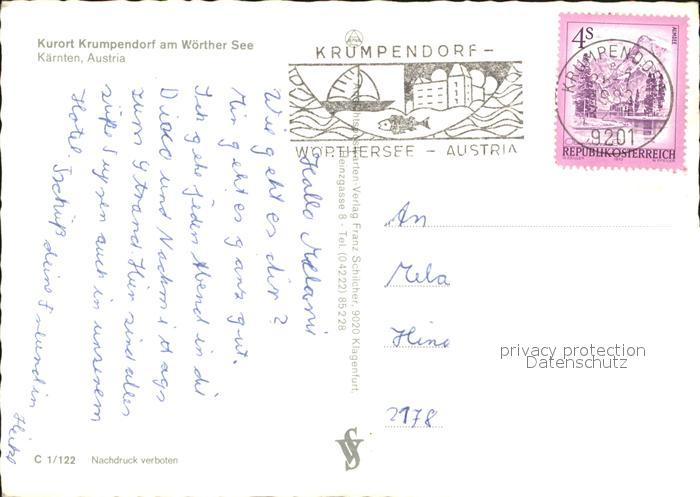 Kurort Krumpendorf am Wörther See
Kärnten, Austria
KRUMPENDORF –
WÖRTHERSEE – AUSTRIA
4S
ALMSEE
REPUBLIK ÖSTERREICH
KRUMPENDORF
9201
Hallo Melanie
Wie geht es dir?
Mir geht es ganz gut.
Ich gehe jeden Abend in die
Disco und Nachmittags
zum Strand Hier sind alles
süße Jungen auch in unserem
Hotel. Tschüß deine Freundin
Heike
Verlag Franz Schilcher, 9020 Klagenfurt,
Heinzgasse 8 · Tel. (04222) 85228
An
Mela
Hino
2178
privacy protection
Datenschutz
C 1/122 Nachdruck verboten